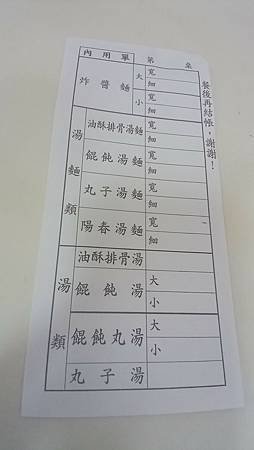 內用單 第 桌
炸醬麵 大 寬 細
小 寬 細
湯麵類
油酥排骨湯麵 寬 細
餛飩湯麵 寬 細
丸子湯麵 寬 細
陽春湯麵 寬 細
湯類
油酥排骨湯
餛飩湯 大 小
餛飩丸湯 大 小
丸子湯
餐後再結帳，謝謝！